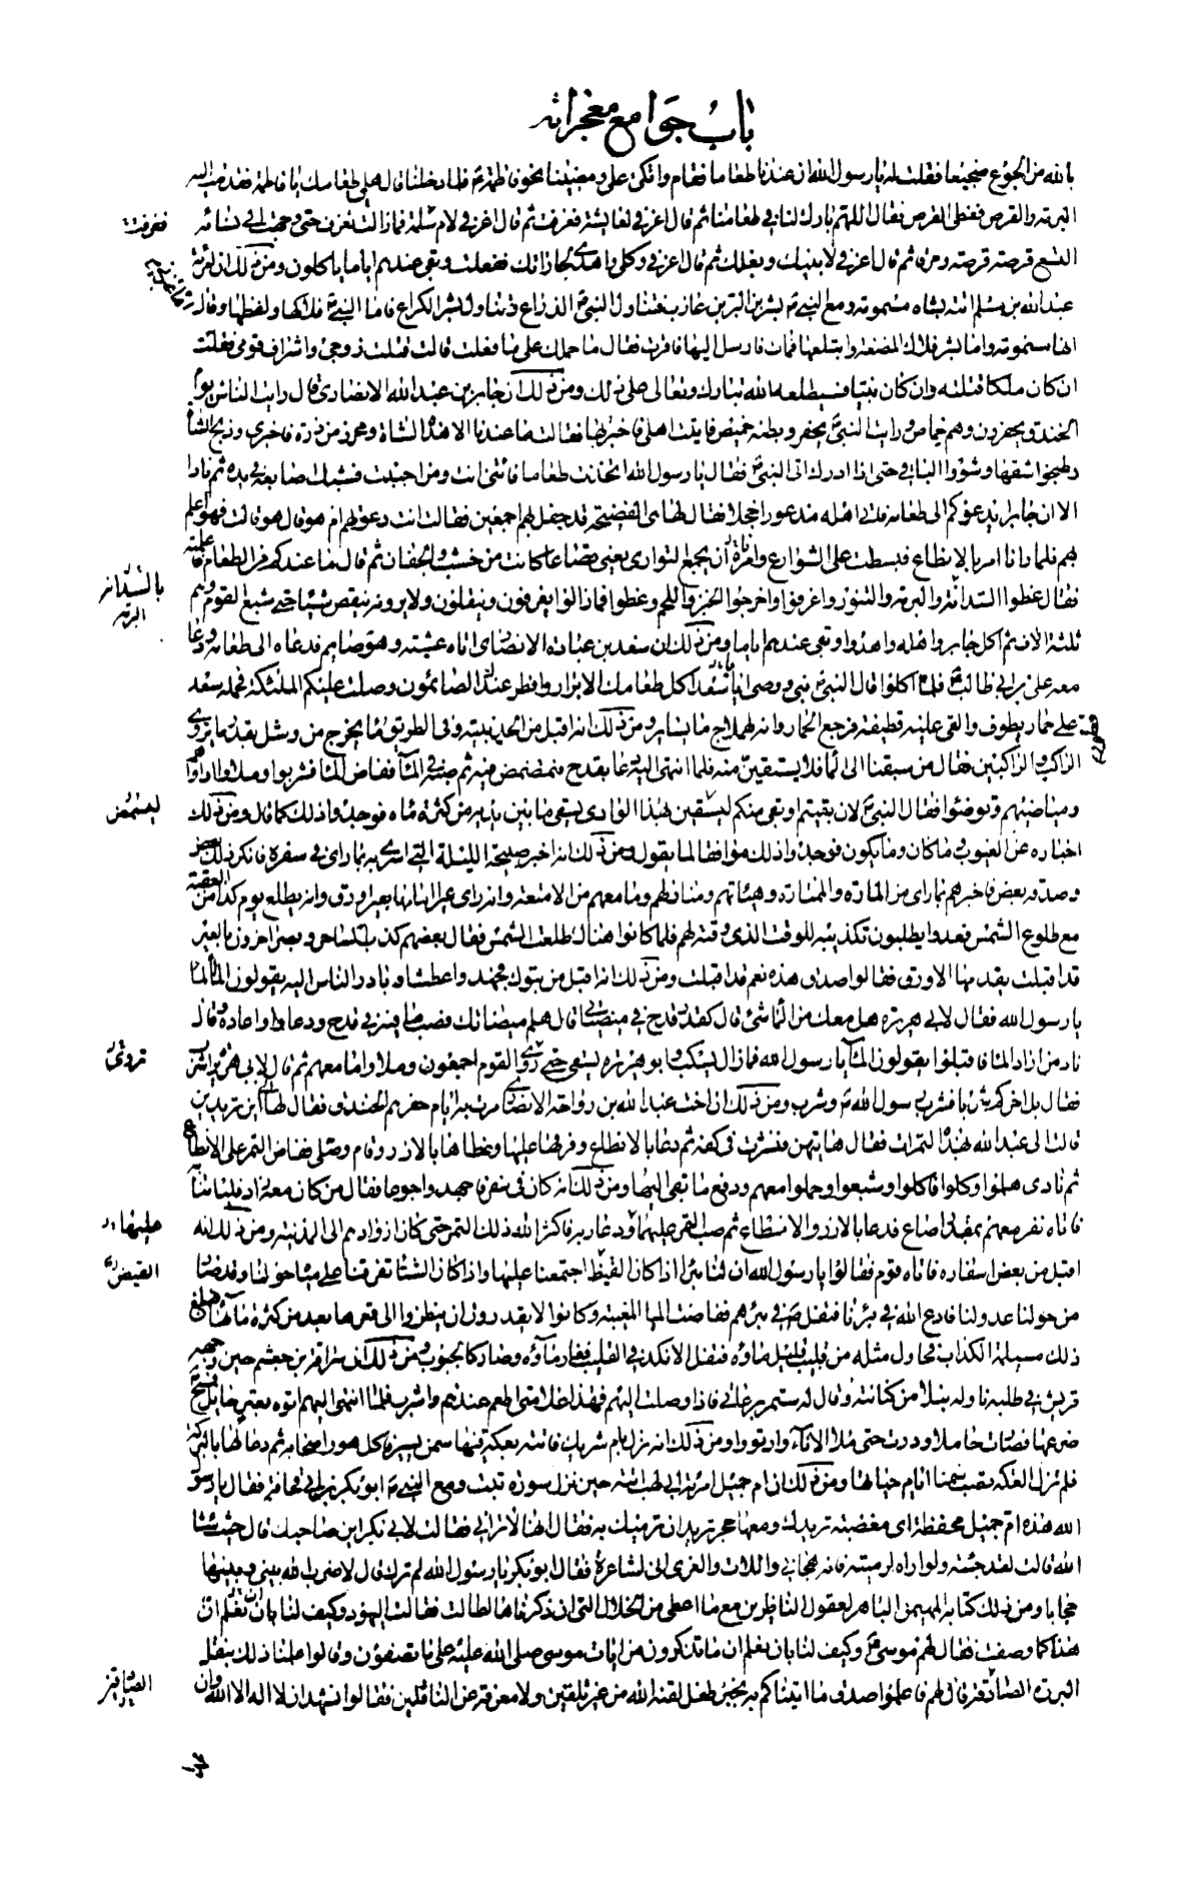 باب جوامع معجزاته
بالله من الجوع ضجيعا فقلت له يا رسول الله ان عندنا طعاما فقام واتكى على ومضينا نحو فاطمة ع فلما دخلنا قال هلمي طعامك يا فاطمة فقدمت اليه
البرمة والقرص فغطى القرص فقال اللهم بارك لنا في طعامنا ثم قال اغرفي لعايشة فغرفت ثم قال اغرفي لام سلمة فما زالت تغرف حتى وجهت الى نسائه
فغرفت
التسع قرصة قرصة ومرقا ثم قال اغرفي لابنيك وبعلك ثم قال اغرفي وكلي واهدي لجاراتك ففعلت وبقي عندهم اياما ياكلون ومن ذلك ان امرئة
عبدالله بن مسلم اتته بشاه مسمومة ومع النبي ص بشر بن البراء بن عازب فتناول النبي ص الذراع وتناول بشر الكراع فاما النبي ص فلاكها ولفظها وقال
انها مسمومة واما بشر فلاك المضغة وابتلعها فمات فارسل اليها فاقرت فقال ما حملك على ما فعلت قالت قتلت زوجي واشراف قومي فقلت
ان كان ملكا قتلته وان كان نبيا فسيطلعه الله تبارك وتعالى على ذلك ومن ذلك ان جابر بن عبد الله الانصاري قال رايت الناس يوم
الخندق يحفرون وهم خماص ورايت النبي ص يحفر وبطنه خميص فاتيت اهلي فاخبرتها فقالت ما عندنا الا هذه الشاة ومحرز من ذرة فاخبزي وذبح الشاة
وطبخوا شقها وشووا الباقي حتى اذا ادرك اتى النبي ص فقال يا رسول الله اتخذت طعاما فائتني انت ومن احببت فشبك اصابعه في يده ثم نادا
الا ان جابر يدعوكم الى طعامه فاتى اهله مذعورا خجلا فقال لها هي الفضيحة قد جفل بهم اجمعين فقالت انت دعوتهم ام هو قال هو قالت فهو اعلم
بهم فلما رانا امر بالانطاع فبسطت على الشوارع وامره ان يجمع التواري يعني قصاعا كانت من خشب والجفان ثم قال ما عندكم من الطعام فاعلمته
فقال غطوا السدانة والبرمة والتنور واغرفوا واخرجوا الخبز واللحم وغطوا فما زالوا يغرفون وينقلون ولا يرونه ينقص شيئا حتى شبع القوم وهم
بالسدانة
البرمة
ثلثة الاف ثم اكل جابر واهله واهدوا وبقي عندهم اياما ومن ذلك ان سعد بن عبادة الانصاري اتاه عشية وهو صايم فدعاه الى طعامه ودعا
معه علي بن ابي طالب ع فلما اكلوا قال النبي ص نبي ووصي يا سعد اكل طعامك الابرار وافطر عندك الصائمون وصلت عليكم الملئكة فحمله سعد
على حمار قطوف والقى عليه قطيفة فرجع الحمار وانه لهملاج ما يساير ومن ذلك انه اقبل من الحديبية وفي الطريق ماء يخرج من وشل بقدر ما يروي
الراكب والراكبين فقال من سبقنا الى الماء فلا يستقين منه فلما انتهى اليه دعا بقدح فتمضمض فيه ثم صبه في الماء ففاض الماء فشربوا وملاوا اداواهم
ومياضيهم وتوضئوا فقال النبي ص لان بقيتم او بقي منكم ليسمعن بهذا الوادي يسقى ما بين يديه من كثرة مائه فوجدوا ذلك كما قال ومن ذلك
ليسمعن
اخباره عن الغيوب وما كان وما يكون فوجدوا ذلك موافقا لما يقول ومن ذلك انه اخبر صبيحة الليلة التي اسري به بما راى في سفره فانكر ذلك بعض
وصدقه بعض فاخبرهم بما راى من المارة والممتارة وهيئاتهم ومنازلهم وما معهم من الامتعة وانه راى عيرا امامها بعير اورق وانه يطلع يوم كذا من العقبة
مع طلوع الشمس فغدوا يطلبون تكذيبه للوقت الذي وقته لهم فلما كانوا هناك طلعت الشمس فقال بعضهم كذب الساحر وبصر اخرون بالعير
قد اقبلت يقدمها الاورق فقالوا صدق هذه نعم قد اقبلت ومن ذلك انه اقبل من تبوك فجهدوا عطشا وبادر الناس اليه يقولون الماء الماء
يا رسول الله فقال لابي هريرة هل معك من الماء شئ قال كقدر قدح في ميضاتي قال هلم ميضاتك فصب ما فيه في قدح ودعا واعاده وقال
ناد من اراد الماء فاقبلوا يقولون الماء يا رسول الله فما زال يسكب وابو هريرة يسقي حتى روى القوم اجمعون وملاوا ما معهم ثم قال لابي هريرة اشرب
تروى
فقال بل اخركم شربا فشرب رسول الله ص وشرب ومن ذلك ان اخت عبد الله بن رواحة الانصاري مرت به ايام حفرهم الخندق فقال لها اين تريدين
قالت الى عبد الله بهذه التمرات فقال هاتيهن فنثرت في كفه ثم دعا بالانطاع وفرقها عليها وغطاها بالازر وقام وصلى ففاض التمر على الانطاع
ثم نادى هلموا وكلوا فاكلوا وشبعوا وحملوا معهم ودفع ما بقي اليها ومن ذلك انه كان في سفر فاجهدوا جوعا فقال من كان معه زاد فلياتنا
فاتاه نفر معهم بمقدار صاع فدعا بالازر والانطاع ثم صب التمر عليها ودعا ربه فاكثر الله ذلك التمر حتى كان ازوادهم الى المدينة ومن ذلك انه
عليها
اقبل من بعض اسفاره فاتاه قوم فقالوا يا رسول الله ان لنا بئرا اذا كان القيظ اجتمعنا عليها واذا كان الشتاء تفرقنا على مياه حولنا وقد صار
القيض
من حولنا عدو لنا فادع الله في بئرنا فتفل ص في بئرهم ففاضت المياه المغيبة وكانوا لا يقدرون ان ينظروا الى قعرها بعد من كثرة مائها فبلغ
ذلك مسيلمة الكذاب فحاول مثله من قليب قليل ماؤه فتفل الانكد في القليب فغار ماؤه وصار كالجبوب ومن ذلك ان سراقة بن جعشم حين وجهه
قريش في طلبه ناوله نبلا من كنانته وقال له ستمر برعاتي فاذا وصلت اليهم فهذا علامتي اطعم عندهم واشرب فلما انتهى اليهم اتوه بعنز حايل فمسح
ضرعها فصارت حاملا ودرت حتى ملا الاناء وارتووا ومن ذلك انه نزل بام شريك فاتته بعكة فيها سمن يسير فاكل هو واصحابه ثم دعا لها بالبركة
فلم تزل العكة تصب سمنا ايام حياتها ومن ذلك ان ام جميل امراة ابي لهب اتته حين نزل سورة تبت ومع النبي ص ابو بكر بن ابي قحافة فقال يا رسول
الله هذه ام جميل محفظة اي مغضبة تريدك ومعها حجر تريد ان ترميك به فقال انها لا تراني فقالت لابي بكر اين صاحبك قال حيث شاء
الله قالت لقد جئته ولو اراه لرميته فانه هجاني واللات والعزى اني لشاعرة فقال ابو بكر يا رسول الله لم ترك قال لا ضرب الله بيني وبينها
حجابا ومن ذلك كتابه المهيمن الباهر لعقول الناظرين مع ما اعطى من الخلال التي ان ذكرناها لطالت فقالت اليهود وكيف لنا بان نعلم ان
هذا كما وصفت فقال لهم موسى ع وكيف لنا بان نعلم ان ما تذكرون من ايات موسى صلى الله عليه على ما تصفون وقالوا علمنا ذلك بنقل
البررة الصادقة قال لهم فاعلموا صدق ما اتيناكم به بخبر طفل لقنه الله من غير تلقين ولا معرفة عن الناقلين فقالوا نشهد ان لا اله الا الله وان
الصادقين